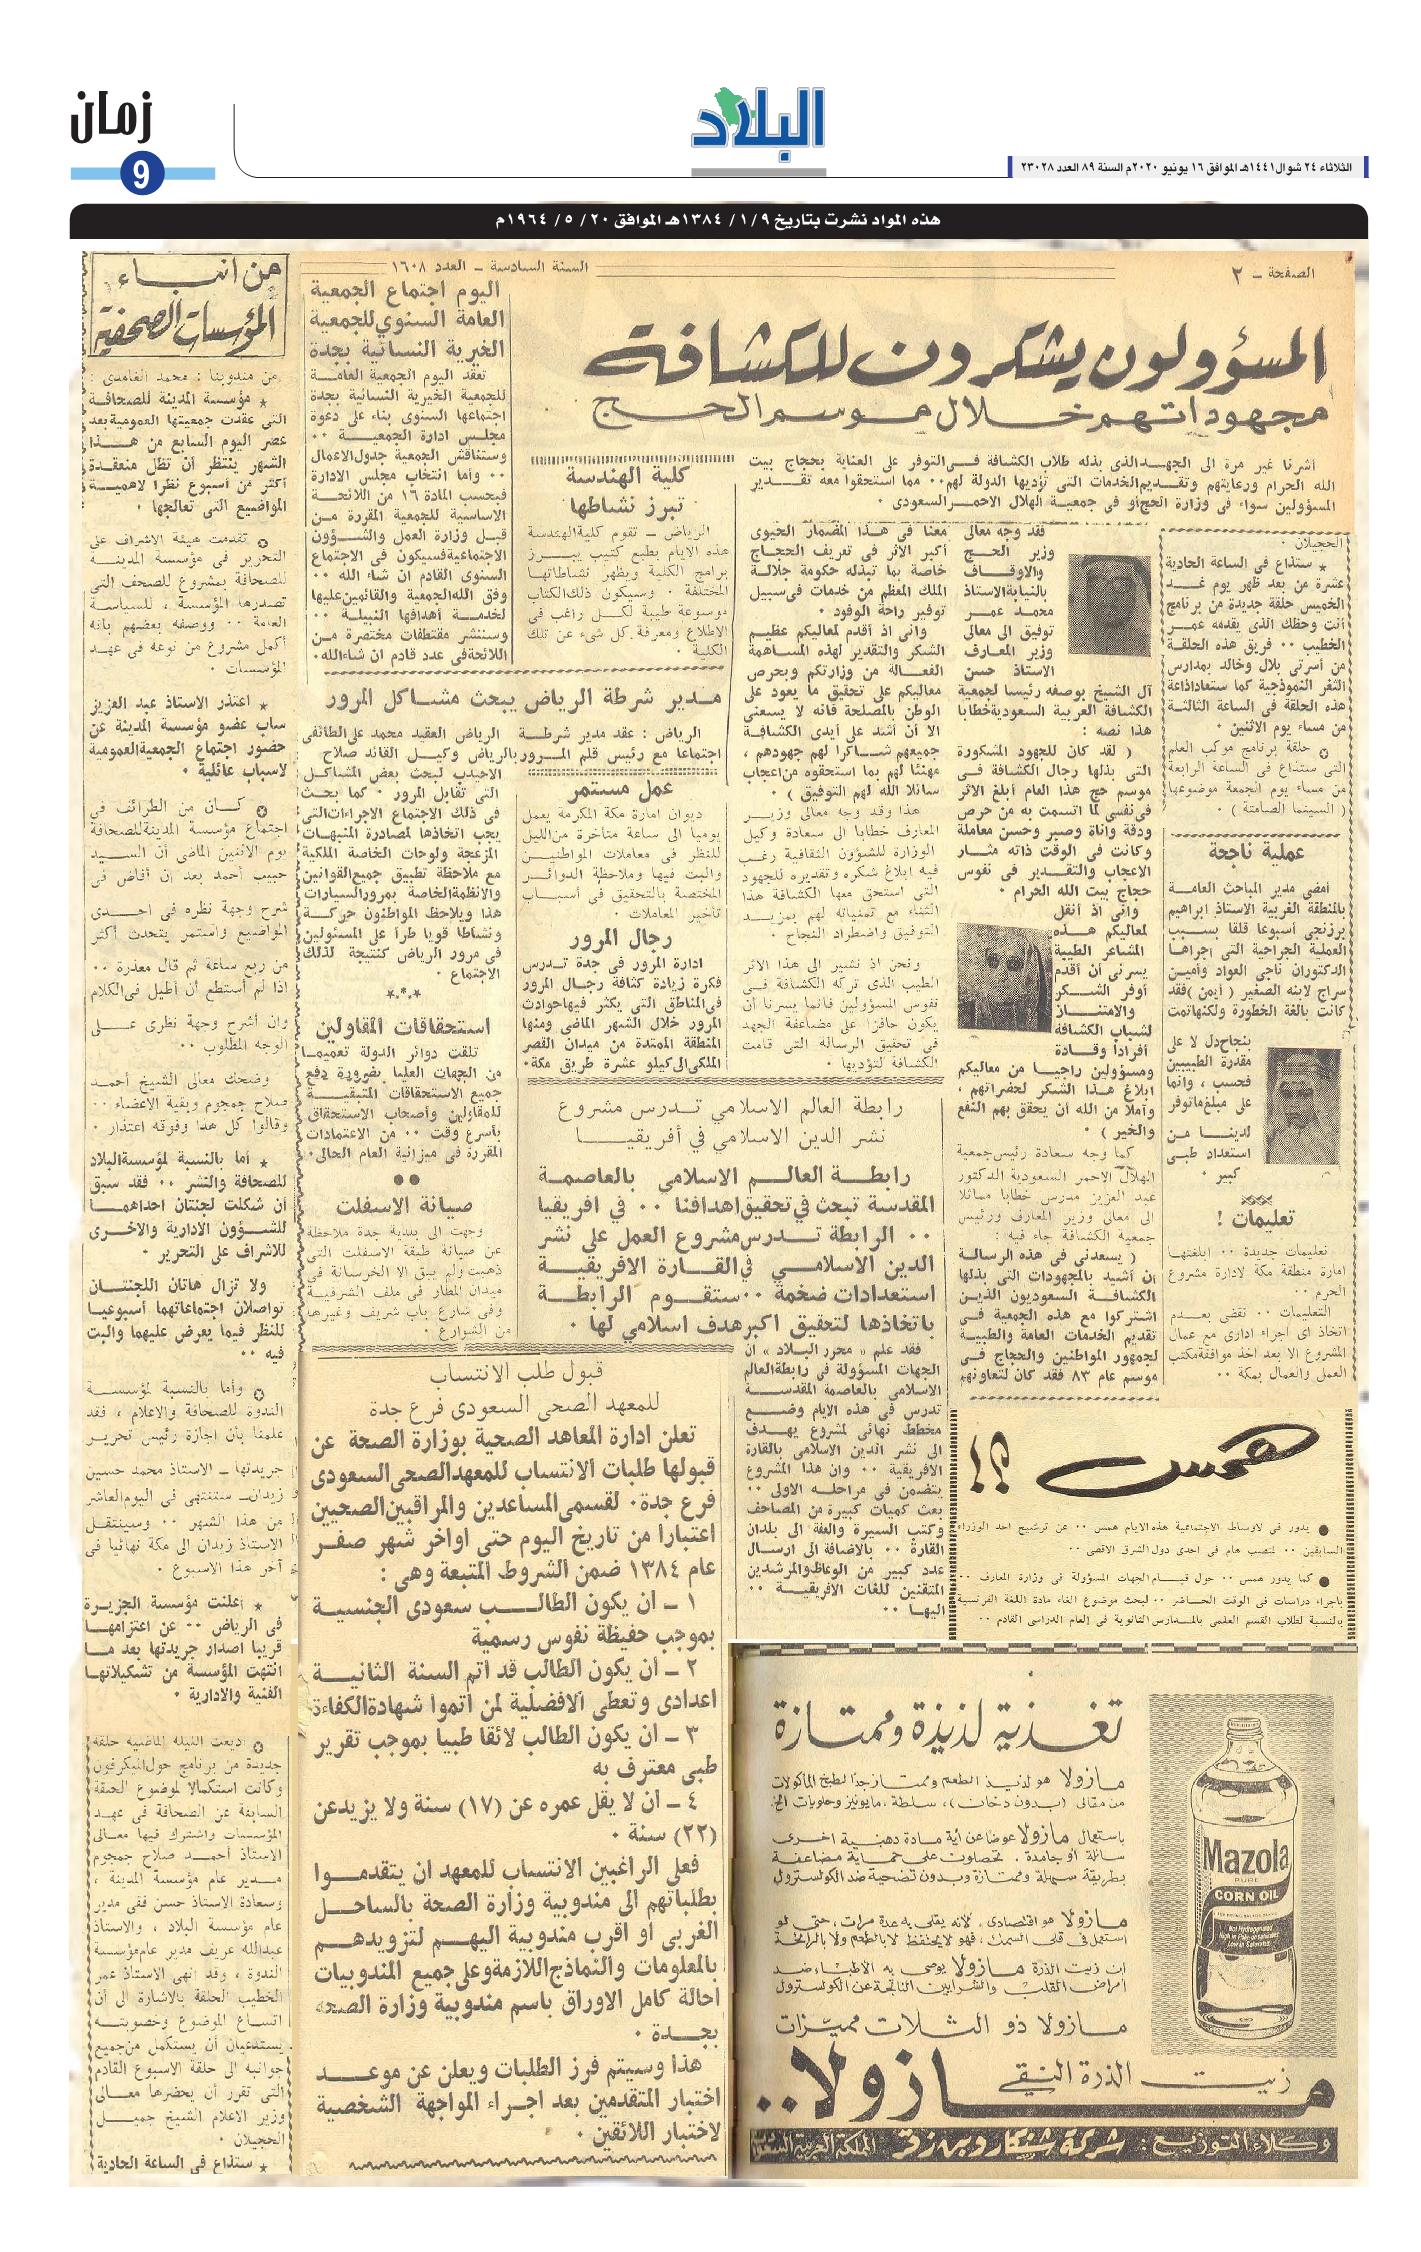 زمان
9
البلاد
الثلاثاء ٢٤ شوال ١٤٤١هـ الموافق ١٦ يونيو ٢٠٢٠م السنة ٨٩ العدد ٢٣٠٢٨
هذه المواد نشرت بتاريخ ٩ /١ /١٣٨٤هـ الموافق ٢٠ /٥ /١٩٦٤م
الصفحة - ٢
السنة السادسة - العدد ١٦٠٨
المسؤولون يشكرون للكشافة
مجهوداتهم خلال موسم الحج
أشرنا غير مرة الى الجهد الذى بذله طلاب الكشافة فى التوفر على العناية بحجاج بيت
الله الحرام ورعايتهم وتقديم الخدمات التى تؤديها الدولة لهم ٠٠ مما استحقوا معه تقدير
المسؤولين سواء فى وزارة الحج أو فى جمعية الهلال الاحمر السعودى ٠
الحجيلان ٠
★ ستذاع فى الساعة الحادية
عشرة من بعد ظهر يوم غد
الخميس حلقة جديدة من برنامج
أنت وحظك الذى يقدمه عمر
الخطيب ٠٠ فريق هذه الحلقة
من أسرتى بلال وخالد بمدارس
الثغر النموذجية كما ستعاد اذاعة
هذه الحلقة فى الساعة الثالثة
من مساء يوم الاثنين ٠
حلقة برنامج موكب العلم
التى ستذاع فى الساعة الرابعة
من مساء يوم الجمعة موضوعها
( السينما الصامتة ) ٠
عملية ناجحة
أمضى مدير المباحث العامة
بالمنطقة الغربية الاستاذ ابراهيم
برزنجى أسبوعا قلقا بسبب
العملية الجراحية التى اجراها
الدكتوران ناجى العواد وأمين
سراج لابنه الصغير ( أيمن ) فقد
كانت بالغة الخطورة ولكنها تمت
بنجاح دل لا على
مقدرة الطبيبين
فحسب ، وانما
على مبلغ ما توفر
لدينا من
استعداد طبى
كبير ٠
تعليمات !
تعليمات جديدة ٠٠ ابلغتها
امارة منطقة مكة لادارة مشروع
الحرم ٠٠
التعليمات ٠٠ تقضى بعدم
اتخاذ اى اجراء ادارى مع عمال
المشروع الا بعد اخذ موافقة مكتب
العمل والعمال بمكة ٠٠
فقد وجه معالى
وزير الحج
والاوقاف
بالنيابة الاستاذ
محمد عمر
توفيق الى معالى
وزير المعارف
الاستاذ حسن
آل الشيخ بوصفه رئيسا لجمعية
الكشافة العربية السعودية خطابا
هذا نصه :
( لقد كان للجهود المشكورة
التى بذلها رجال الكشافة فى
موسم حج هذا العام أبلغ الاثر
فى نفسى لما اتسمت به من حرص
ودقة واناة وصبر وحسن معاملة
وكانت فى الوقت ذاته مثار
الاعجاب والتقدير فى نفوس
حجاج بيت الله الحرام ٠
وانى اذ أنقل
لمعاليكم هذه
المشاعر الطيبة
يسرنى أن أقدم
أوفر الشكر
والامتنان
لشباب الكشافة
أفرادا وقادة
ومسؤولين راجيا من معاليكم
ابلاغ هذا الشكر لحضراتهم ،
وآملا من الله أن يحقق بهم النفع
والخير ) ٠
كما وجه سعادة رئيس جمعية
الهلال الاحمر السعودية الدكتور
عبد العزيز مدرس خطابا مماثلا
الى معالى وزير المعارف ورئيس
جمعية الكشافة جاء فيه :
( يسعدنى فى هذه الرسالة
ان أشيد بالمجهودات التى بذلها
الكشافة السعوديون الذين
اشتركوا مع هذه الجمعية فى
تقديم الخدمات العامة والطبية
لجمهور المواطنين والحجاج فى
موسم عام ٨٣ فقد كان لتعاونهم
معنا فى هذا المضمار الحيوى
أكبر الاثر فى تعريف الحجاج
خاصة بما تبذله حكومة جلالة
الملك المعظم من خدمات فى سبيل
توفير راحة الوفود ٠
وانى اذ أقدم لمعاليكم عظيم
الشكر والتقدير لهذه المساهمة
الفعالة من وزارتكم وبحرص
معاليكم على تحقيق ما يعود على
الوطن بالمصلحة فانه لا يسعنى
الا أن أشد على أيدى الكشافة
جميعهم شاكرا لهم جهودهم ،
مهنئا لهم بما استحقوه من اعجاب
سائلا الله لهم التوفيق ) ٠
هذا وقد وجه معالى وزير
المعارف خطابا الى سعادة وكيل
الوزارة للشؤون الثقافية رغب
فيه ابلاغ شكره وتقديره للجهود
التى استحق معها الكشافة هذا
الثناء مع تمنياته لهم بمزيد
التوفيق واضطراد النجاح ٠
ونحن اذ نشير الى هذا الاثر
الطيب الذى تركه الكشافة فى
نفوس المسؤولين فانما يسرنا أن
يكون حافزا على مضاعفة الجهد
فى تحقيق الرسالة التى قامت
الكشافة لتؤديها ٠
كلية الهندسة
تبرز نشاطها
الرياض - تقوم كلية الهندسة
هذه الايام بطبع كتيب يبرز
برامج الكلية ويظهر نشاطاتها
المختلفة ٠ وسيكون ذلك الكتاب
موسوعة طيبة لكل راغب فى
الاطلاع ومعرفة كل شىء عن تلك
الكلية ٠
اليوم اجتماع الجمعية
العامة السنوي للجمعية
الخيرية النسائية بجدة
تعقد اليوم الجمعية العامة
للجمعية الخيرية النسائية بجدة
اجتماعها السنوى بناء على دعوة
مجلس ادارة الجمعية ٠٠
وستناقش الجمعية جدول الاعمال
٠٠ وأما انتخاب مجلس الادارة
فبحسب المادة ١٦ من اللائحة
الاساسية للجمعية المقررة من
قبل وزارة العمل والشؤون
الاجتماعية فسيكون فى الاجتماع
السنوى القادم ان شاء الله ٠٠
وفق الله الجمعية والقائمين عليها
لخدمة أهدافها النبيلة ٠٠
وسننشر مقتطفات مختصرة من
اللائحة فى عدد قادم ان شاء الله ٠
مدير شرطة الرياض يبحث مشاكل المرور
الرياض : عقد مدير شرطة الرياض العقيد محمد على الطائفى
اجتماعا مع رئيس قلم المرور بالرياض وكيل القائد صلاح
الاحيدب لبحث بعض المشاكل
التى تقابل المرور ٠ كما بحث
فى ذلك الاجتماع الاجراءات التى
يجب اتخاذها لمصادرة المنبهات
المزعجة ولوحات الخاصة الملكية
مع ملاحظة تطبيق جميع القوانين
والانظمة الخاصة بمرور السيارات
هذا ويلاحظ المواطنون حركة
ونشاطا قويا طرأ على المسئولين
فى مرور الرياض كنتيجة لذلك
الاجتماع ٠
عمل مستمر
ديوان امارة مكة المكرمة يعمل
يوميا الى ساعة متأخرة من الليل
للنظر فى معاملات المواطنين
والبت فيها وملاحظة الدوائر
المختصة بالتحقيق فى أسباب
تأخير المعاملات ٠
رجال المرور
ادارة المرور فى جدة تدرس
فكرة زيادة كثافة رجال المرور
فى المناطق التى يكثر فيها حوادث
المرور خلال الشهر الماضى ومنها
المنطقة الممتدة من ميدان القصر
الملكى الى كيلو عشرة طريق مكة ٠
استحقاقات المقاولين
تلقت دوائر الدولة تعميما
من الجهات العليا بضرورة دفع
جميع الاستحقاقات المتبقية
للمقاولين وأصحاب الاستحقاق
بأسرع وقت ٠٠ من الاعتمادات
المقررة فى ميزانية العام الحالى ٠
صيانة الاسفلت
وجهت الى بلدية جدة ملاحظة
عن صيانة طبقة الاسفلت التى
ذهبت ولم يبق الا الخرسانة فى
ميدان المطار فى ملف الشرفية
وفى شارع باب شريف وغيرها
من الشوارع ٠
رابطة العالم الاسلامي تدرس مشروع
نشر الدين الاسلامي في أفريقيا
رابطة العالم الاسلامي بالعاصمة
المقدسة تبحث في تحقيق اهدافنا ٠٠ في افريقيا
٠٠ الرابطة تدرس مشروع العمل على نشر
الدين الاسلامي في القارة الافريقية
استعدادات ضخمة ٠٠ ستقوم الرابطة
باتخاذها لتحقيق اكبر هدف اسلامي لها ٠
فقد علم « محرر البلاد » ان
الجهات المسؤولة فى رابطة العالم
الاسلامى بالعاصمة المقدسة
تدرس فى هذه الايام وضع
مخطط نهائى لمشروع يهدف
الى نشر الدين الاسلامى بالقارة
الافريقية ٠٠ وان هذا المشروع
يتضمن فى مراحله الاولى ٠٠
بعث كميات كبيرة من المصاحف
وكتب السيرة والفقه الى بلدان
القارة ٠٠ بالاضافة الى ارسال
عدد كبير من الوعاظ والمرشدين
المتقنين للغات الافريقية ٠٠
اليها ٠٠
همس ؟!
● يدور فى لاوساط الاجتماعية هذه الايام همس ٠٠ عن ترشيح احد الوزراء
السابقين ٠٠ لمنصب هام فى احدى دول الشرق الاقصى ٠٠
● كما يدور همس ٠٠ حول قيام الجهات المسؤولة فى وزارة المعارف ٠٠
باجراء دراسات فى الوقت الحاضر ٠٠ لبحث موضوع الغاء مادة اللغة الفرنسية
بالنسبة لطلاب القسم العلمى بالمدارس الثانوية فى العام الدراسى القادم ٠٠
قبول طلب الانتساب
للمعهد الصحى السعودى فرع جدة
تعلن ادارة المعاهد الصحية بوزارة الصحة عن
قبولها طلبات الانتساب للمعهد الصحى السعودى
فرع جدة ٠ لقسمى المساعدين والمراقبين الصحيين
اعتبارا من تاريخ اليوم حتى اواخر شهر صفر
عام ١٣٨٤ ضمن الشروط المتبعة وهى :
١ - ان يكون الطالب سعودى الجنسية
بموجب حفيظة نفوس رسمية
٢ - ان يكون الطالب قد اتم السنة الثانية
اعدادى وتعطى الافضلية لمن اتموا شهادة الكفاءة
٣ - ان يكون الطالب لائقا طبيا بموجب تقرير
طبى معترف به
٤ - ان لا يقل عمره عن (١٧) سنة ولا يزيد عن
(٢٢) سنة ٠
فعلى الراغبين الانتساب للمعهد ان يتقدموا
بطلباتهم الى مندوبية وزارة الصحة بالساحل
الغربى او اقرب مندوبية اليهم لتزويدهم
بالمعلومات والنماذج اللازمة وعلى جميع المندوبيات
احالة كامل الاوراق باسم مندوبية وزارة الصحة
بجدة ٠
هذا وسيتم فرز الطلبات ويعلن عن موعد
اختبار المتقدمين بعد اجراء المواجهة الشخصية
لاختبار اللائقين ٠
من انباء
المؤسسات الصحفية
من مندوبنا : محمد الغامدى :
★ مؤسسة المدينة للصحافة
التى عقدت جمعيتها العمومية بعد
عصر اليوم السابع من هذا
الشهر ينتظر أن تظل منعقدة
أكثر من أسبوع نظرا لاهمية
المواضيع التى تعالجها ٠
تقدمت هيئة الاشراف على
التحرير فى مؤسسة المدينة
للصحافة بمشروع للصحف التى
تصدرها المؤسسة ، للسياسة
العامة ٠٠ ووصفه بعضهم بأنه
أكمل مشروع من نوعه فى عهد
المؤسسات ٠
★ اعتذر الاستاذ عبد العزيز
ساب عضو مؤسسة المدينة عن
حضور اجتماع الجمعية العمومية
لاسباب عائلية ٠
كان من الطرائف فى
اجتماع مؤسسة المدينة للصحافة
يوم الاثنين الماضى أن السيد
حبيب أحمد بعد ان أفاض فى
شرح وجهة نظره فى احدى
المواضيع واستمر يتحدث أكثر
من ربع ساعة ثم قال معذرة ٠٠
اذا لم أستطع أن أطيل فى الكلام
وان أشرح وجهة نظرى على
الوجه المطلوب ٠٠
وضحك معالى الشيخ أحمد
صلاح جمجوم وبقية الاعضاء ٠٠
وقالوا كل هذا وفوقه اعتذار ٠
★ أما بالنسبة لمؤسسة البلاد
للصحافة والنشر ٠٠ فقد سبق
أن شكلت لجنتان احداهما
للشؤون الادارية والاخرى
للاشراف على التحرير ٠
ولا تزال هاتان اللجنتان
تواصلان اجتماعاتهما أسبوعيا
للنظر فيما يعرض عليهما والبت
فيه ٠٠
وأما بالنسبة لمؤسسة
الندوة للصحافة والاعلام ، فقد
علمنا بأن اجازة رئيس تحرير
جريدتها - الاستاذ محمد حسين
زيدان - ستنتهى فى اليوم العاشر
من هذا الشهر ٠٠ وسينتقل
الاستاذ زيدان الى مكة نهائيا فى
آخر هذا الاسبوع ٠
★ أعلنت مؤسسة الجزيرة
فى الرياض ٠٠ عن اعتزامها
قريبا اصدار جريدتها بعد ما
انتهت المؤسسة من تشكيلاتها
الفنية والادارية ٠
ذيعت الليلة الماضية حلقة
جديدة من برنامج حول الميكرفون
وكانت استكمالا لموضوع الحلقة
السابقة عن الصحافة فى عهد
المؤسسات واشترك فيها معالى
الاستاذ أحمد صلاح جمجوم
مدير عام مؤسسة المدينة ،
وسعادة الاستاذ حسن قفى مدير
عام مؤسسة البلاد ، والاستاذ
عبدالله عريف مدير عام مؤسسة
الندوة ، وقد انهى الاستاذ عمر
الخطيب الحلقة بالاشارة الى أن
اتساع الموضوع وخصوبته
يستدعيان أن يستكمل من جميع
جوانبه الى حلقة الاسبوع القادم
التى تقرر أن يحضرها معالى
وزير الاعلام الشيخ جميل
الحجيلان ٠
★ ستذاع فى الساعة الحادية
تغذية لذيذة وممتازة
مازولا هو لذيذ الطعم وممتاز جدا لطبخ المأكولات
من مقالى (بدون دخان)، سلطة، مايونيز وحلويات الخ.
باستعمال مازولا عوضا عن أية مادة دهنية اخرى
سائلة أو جامدة، تحصلون على حماية مضاعفة
بطريقة سهلة وممتازة وبدون تضحية ضد الكولسترول
مازولا هو اقتصادى، لأنه يقلى به عدة مرات، حتى لو
استعمل فى قلى السمك، فهو لا يحتفظ لا بالطعم ولا بالرائحة
ان زيت الذرة مازولا يوصى به الأطباء ضد
أمراض القلب والشرايين الناتجة عن الكولسترول
مازولا ذو الثلاث مميزات
زيت الذرة النقي
مازولا..
Mazola
PURE
CORN OIL
وكلاء التوزيع : شركة شنكار وبن زقر المملكة العربية السعودية